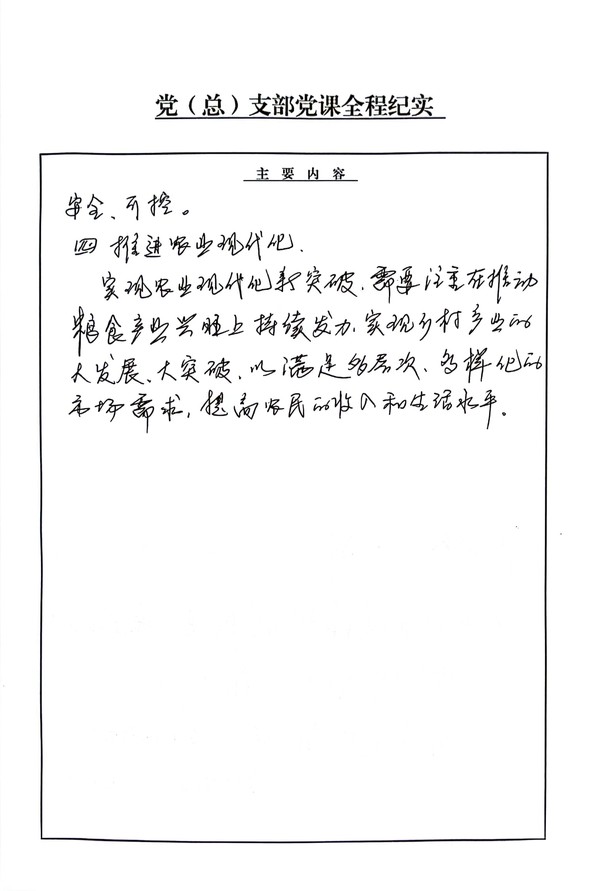 党（总）支部党课全程纪实
主要内容
安全、可控。
四 推进农业现代化.
实现农业现代化新突破、需要注重在推动
粮食产业兴旺上持续发力、实现乡村产业的
大发展、大突破、以满足多层次、多样化的
市场需求，提高农民的收入和生活水平。